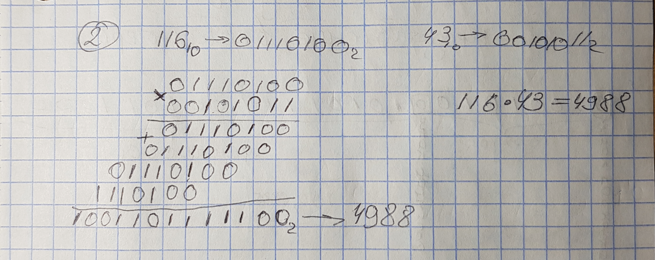 2 116₁₀→01110100₂ 43₁₀→00101011₂
01110100
×00101011
116·43=4988
+01110100
01110100
01110100
1110100
1001101111100₂→4988